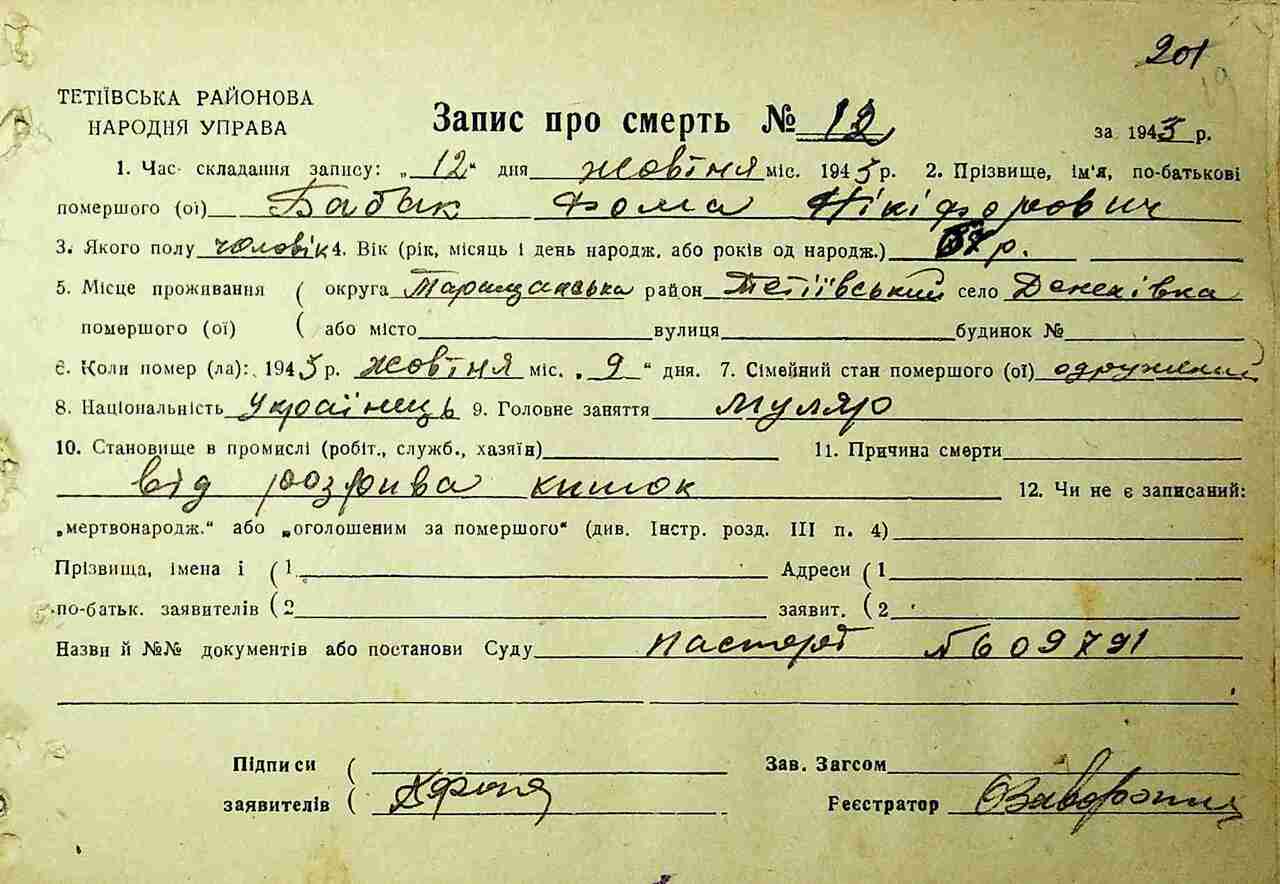 201
19
ТЕТІЇВСЬКА РАЙОНОВА
НАРОДНЯ УПРАВА
Запис про смерть № 12
за 1943 р.
1. Час складання запису: „12" дня жовтня міс. 1943 р. 2. Прізвище, ім'я, по-батькові
помершого (ої) Бабак Фома Нікіфорович
3. Якого полу чоловік 4. Вік (рік, місяць і день народж. або років од народж.) 67 р.
5. Місце проживання ( округа Таращанська район Тетіївський село Денехівка
помершого (ої) ( або місто вулиця будинок №
6. Коли помер (ла): 1943 р. жовтня міс. „9" дня. 7. Сімейний стан помершого (ої) одружений
8. Національність Українець 9. Головне заняття Муляр
10. Становище в промислі (робіт., служб., хазяїн) 11. Причина смерти
від розрива кишок 12. Чи не є записаний:
„мертвонародж." або „оголошеним за помершого" (див. Інстр. розд. III п. 4)
Прізвища, імена і ( 1 Адреси ( 1
по-батьк. заявителів ( 2 заявит. ( 2
Назви й №№ документів або постанови Суду паспорт № 609791
Підписи ( Зав. Загсом
заявителів ( Реєстратор